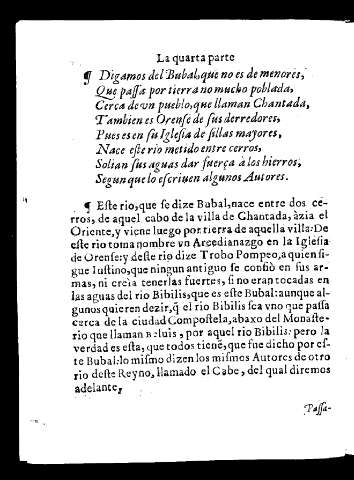 La quarta parte
¶ Digamos del Bubal, que no es de menores,
Que passa por tierra no mucho poblada,
Cerca de vn pueblo, que llaman Chantada,
Tambien es Orense de sus derredores,
Pues es en su Iglesia de sillas mayores,
Nace este rio metido entre cerros,
Solian sus aguas dar fuerça à los hierros,
Segun que lo escriuen algunos Autores.
¶ Este rio, que se dize Bubal, nace entre dos ce-
rros, de aquel cabo de la villa de Ghantada, àzia el
Oriente, y viene luego por tierra de aquella villa: De
este rio toma nombre vn Arcedianazgo en la Iglesia
de Orense: y deste rio dize Trobo Pompeo, a quien si-
gue Iustino, que ningun antiguo se confiò en sus ar-
mas, ni creìa tenerlas fuertes, si no eran tocadas en
las aguas del rio Bibilis, que es este Bubal: aunque al-
gunos quieren dezir, q̃ el rio Bibilis sea vno que passa
cerca de la ciudad Compostela, abaxo del Monaste-
rio que llaman Beluis, por aquel rio Bibilis: pero la
verdad es esta, que todos tienẽ, que fue dicho por es-
te Bubal: lo mismo dizen los mismos Autores de otro
rio deste Reyno, llamado el Cabe, del qual diremos
adelante,
Passa-